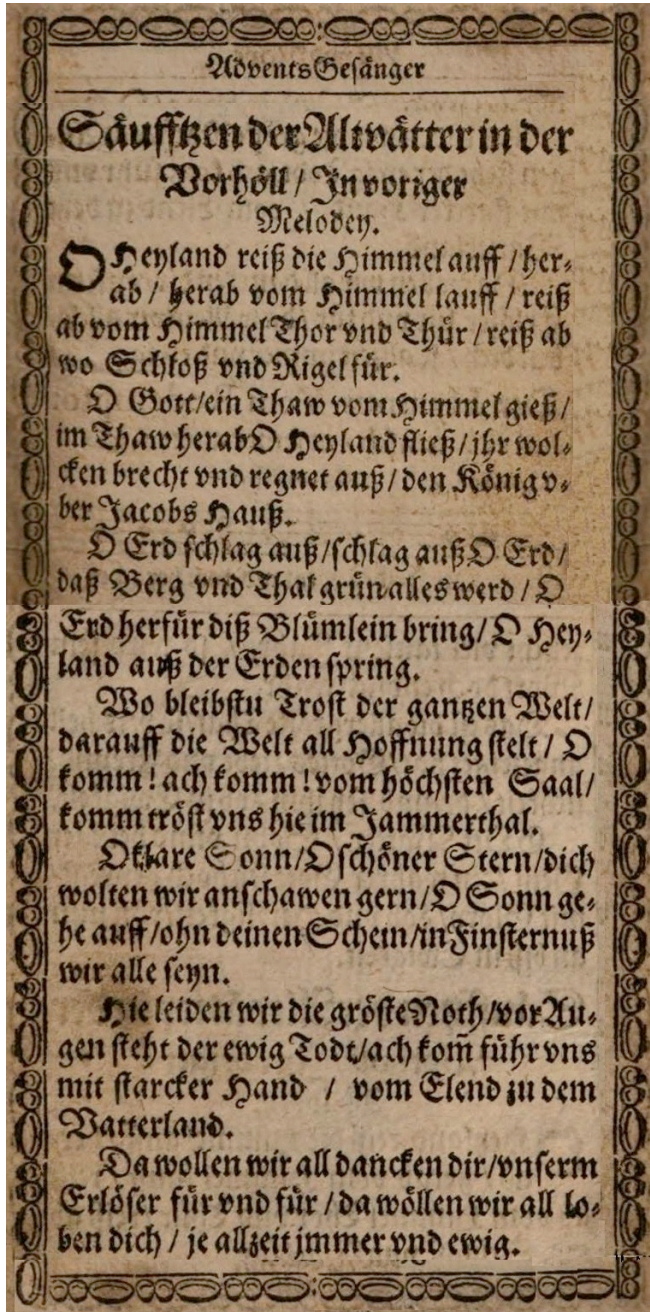 AdventsGesänger
Säufftzen der Altvätter in der
Vorhöll / In voriger
Melodey.
O Heyland reiß die Himmel auff / her-
ab / herab vom Himmel lauff / reiß
ab vom Himmel Thor vnd Thür / reiß ab
wo Schloß vnd Rigel für.
O Gott/ein Thaw vom Himmel gieß/
im Thaw herab O Heyland fließ/jhr wol-
cken brecht vnd regnet auß/den König v-
ber Jacobs Hauß.
O Erd schlag auß/schlag auß O Erd/
daß Berg vnd Thal grün alles werd / O
Erd herfür diß Blümlein bring/O Hey-
land auß der Erden spring.
Wo bleibstu Trost der gantzen Welt/
darauff die Welt all Hoffnung stelt / O
komm! ach komm! vom höchsten Saal/
komm tröst vns hie im Jammerthal.
O klare Sonn/O schöner Stern/dich
wolten wir anschawen gern/O Sonn ge-
he auff/ohn deinen Schein/in Finsternuß
wir alle seyn.
Hie leiden wir die gröste Noth/vor Au-
gen steht der ewig Todt/ach kom̃ führ vns
mit starcker Hand / vom Elend zu dem
Vatterland.
Da wollen wir all dancken dir/vnserm
Erlöser für vnd für / da wöllen wir all lo-
ben dich / je allzeit jmmer vnd ewig.